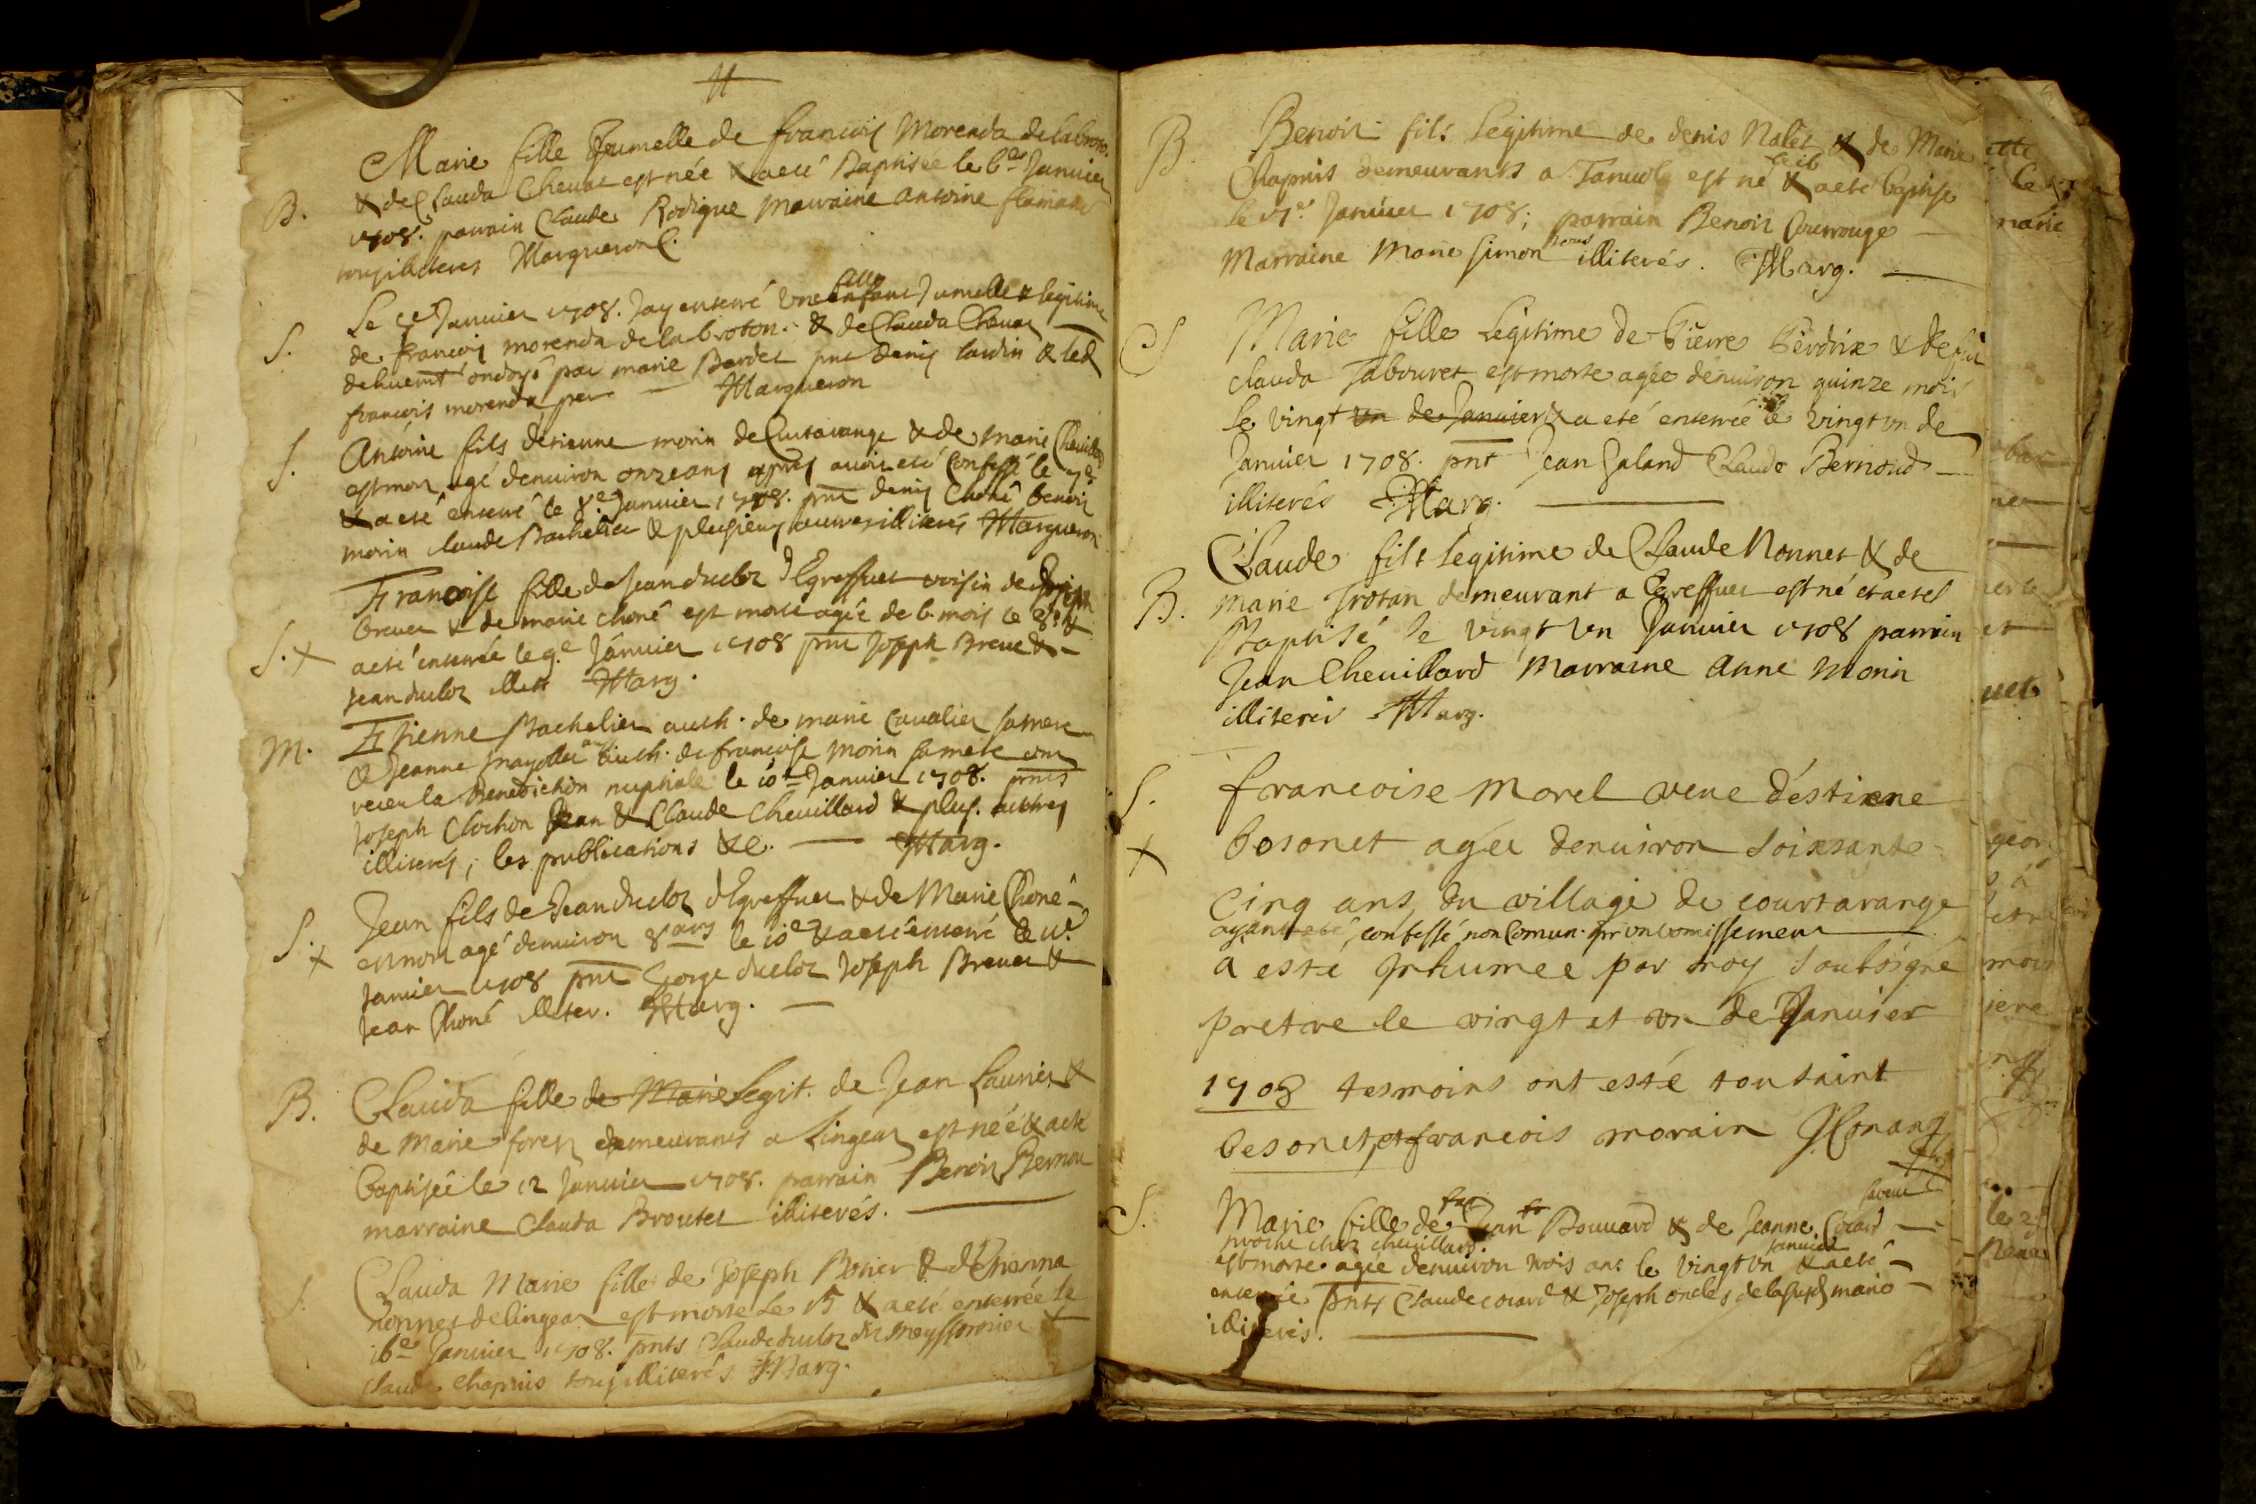 Marie fille Jeumelle de francois Morenda de labroto.
& de Clauda Chevat est née & a eté Baptisée le 6.e Janvier
B.
1708. parrain Claude Rodigue Marraine antoine flaman
tous illiterés Margueron C.
Le Janvier 1708. Jay enterré une enfant Jumelle & legitime
S.
de francois morenda de labroton. & de Clauda Chevat
duement ondoyé par marie Bardet pnt denis Jardin & led
francois morenda per Margueron
S.
Antoine fils détienne morin de Curtavange & de marie Chevillard
est mort agé denuiron onze ans apres auoir eté Confessé le 7e
& a eté enterré le 8e Janvier 1708. pnt denis Choné benoit
morin claude Bachelier & plusieurs autres illiterés Margueron
Francoise fille de Jean duclos d'Egreffuet voisin de Joseph
brevet & de marie choné est morte agée de 6. mois le 8e &
S. +
a eté enterrée le 9e Janvier 1708 pnt Joseph Brevet &
Jean duclos illit Marg.
M.
Etienne Bachelier auth. de marie Cavalier sa mere
& Jeanne mayollet auth. de francoise morin sa mere ont
receu la Benediction nuptiale le 10e Janvier 1708. pnts
Joseph Clochon Jean & Claude Chevillard & plus. autres
illiterés, les publications &c. Marg.
Jean fils de Jean duclos d'Egreffuet & de Marie Choné
S. +
est mort agé denuiron 8 ans le 10e & a eté enterré le 11e
Janvier 1708 pnt George duclos Joseph Brevet &
Jean Choné illiter. Marg.
B.
Clauda fille de Marie Legit. de Jean Launier &
de Marie foret demeurants a Lingeat est née & a eté
baptisée le 12 Janvier 1708. parrain Benoit Bernou
marraine Clauda Broutet illiterés.
Clauda Marie fille de Joseph Bonier & d'Etienna
S.
nonnet de lingeat est morte le 15 & a eté enterrée le
16e Janvier 1708. pnts Claude duclos dit meyssonnier &
claude chapuis tous illiterés Marg.
B.
Benoit fils Legitime de denis Nalet & de Marie
Chapuis demeurants a Tanvol est né le 16 & a eté baptisé
le 17e Janvier 1708; parrain Benoit Courrouge
Marraine Marie Simon tous illiterés. Marg.
S
Marie fille Legitime de Pierre Perdrix & de fue
clauda Tabouret est morte agée denuiron quinze mois
le vingt un de Janvier & a eté enterrée le vingt un de
Janvier 1708. pnt Jean Galand Claude Bernoud
illiterés Marg.
Claude fils legitime de Claude Nonnet & de
B.
marie Trotan demeurant a Egreffuet est né et a eté
Baptisé le vingt un Janvier 1708 parrain
Jean Chevillard Marraine Anne Morin
illiterés Marg.
S.
francoise morel veue déstiene
+
bosonet agée denuiron Soixsante
cinq ans du village de courtavange
ayant eté confessé non Comun. pr un vomissement
a esté Inhumée par moy soubsigné
pretre le vingt et un de Janvier
1708 tesmoins ont esté toutsaint
besonet, et francois morain J Conant
S.
Marie fille de feu Jean Bouvard & de Jeanne Coard sa veuve
proche chez chevillard.
est morte agée denuiron trois ans le vingt un Janvier & a eté
enterrée pnts Claude coard & Joseph oncles de la susd marie
illiterés.